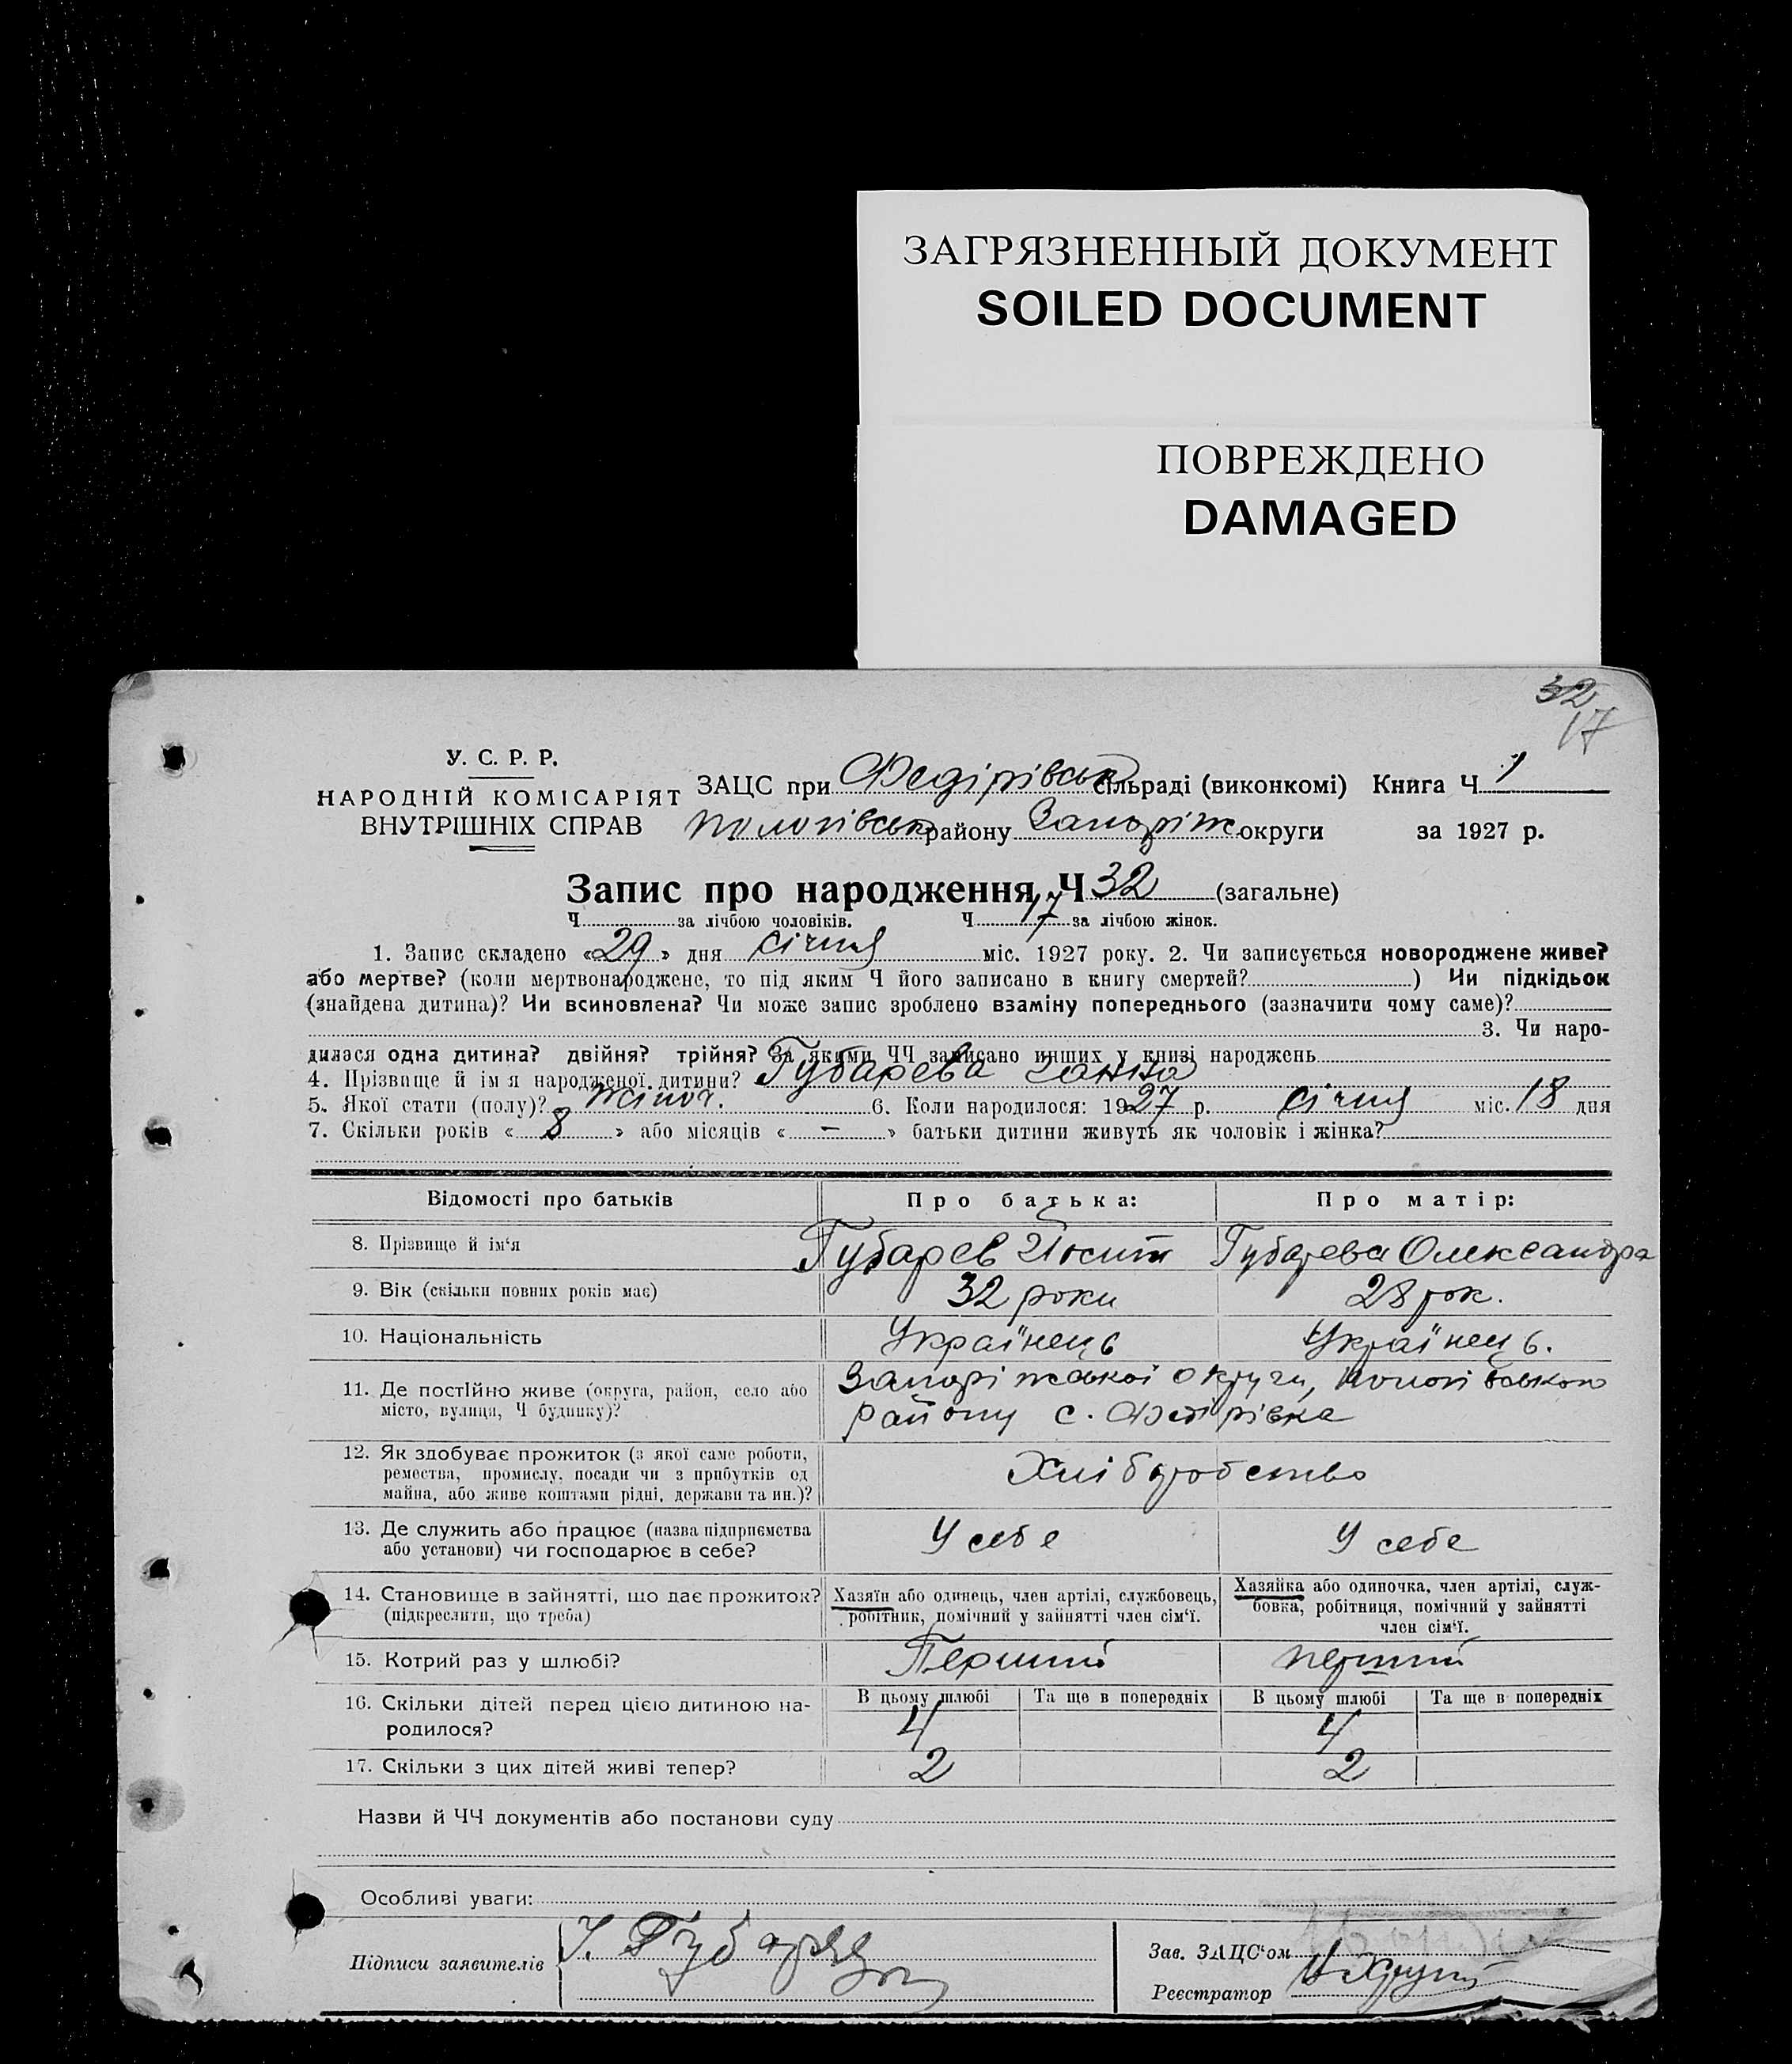 ЗАГРЯЗНЕННЫЙ ДОКУМЕНТ
SOILED DOCUMENT
ПОВРЕЖДЕНО
DAMAGED
32
17
У. С. Р. Р.
НАРОДНІЙ КОМІСАРІЯТ
ВНУТРІШНІХ СПРАВ
ЗАЦС при Федірівськ сільраді (виконкомі) Книга Ч 1
Пологівськ району Запоріж округи за 1927 р.
Запис про народження Ч 32 (загальне)
Ч за лічбою чоловіків. Ч 17 за лічбою жінок.
1. Запис складено «29» дня січня міс. 1927 року. 2. Чи записується новороджене живе?
або мертве? (коли мертвонароджене, то під яким Ч його записано в книгу смертей? ) Чи підкідьок
(знайдена дитина)? Чи всиновлена? Чи може запис зроблено взаміну попереднього (зазначити чому саме)?
3. Чи наро-
дилася одна дитина? двійня? трійня? За якими ЧЧ записано инших у книзі народжень
4. Прізвище й ім я народженої дитини? Губарєва Ганна
5. Якої стати (полу)? жіноч. 6. Коли народилося: 1927 р. січня міс. 18 дня
7. Скільки років «8» або місяців «—» батьки дитини живуть як чоловік і жінка?
Відомості про батьків Про батька: Про матір:
8. Прізвище й ім'я Губарєв Йосип Губарєва Олександра
9. Вік (скільки повних років має) 32 роки 28 рок.
10. Національність Українець Українець.
11. Де постійно живе (округа, район, село або
місто, вулиця, Ч будинку)?
Запоріжської округи, Пологівського
району с. Федірівка
12. Як здобуває прожиток (з якої саме роботи,
ремества, промислу, посади чи з прибутків од
майна, або живе коштами рідні, держави та ин.)?
Хліборобство
13. Де служить або працює (назва підприємства
або установи) чи господарює в себе?
У себе У себе
14. Становище в зайнятті, що дає прожиток?
(підкреслити, що треба)
Хазяїн або одинець, член артілі, службовець,
робітник, помічний у зайнятті член сім'ї.
Хазяйка або одиночка, член артілі, служ-
бовка, робітниця, помічний у зайнятті
член сім'ї.
15. Котрий раз у шлюбі? Перший перший
16. Скільки дітей перед цією дитиною на-
родилося?
В цьому шлюбі Та ще в попередніх В цьому шлюбі Та ще в попередніх
4 4
17. Скільки з цих дітей живі тепер? 2 2
Назви й ЧЧ документів або постанови суду
Особливі уваги:
Підписи заявителів
Зав. ЗАЦС'ом
Реєстратор